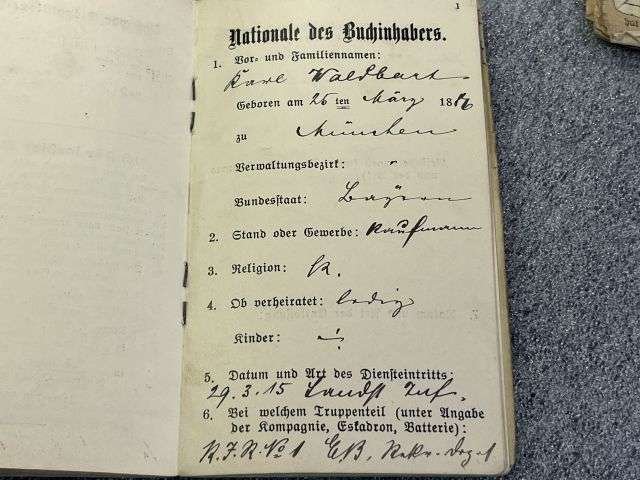 1
Nationale des Buchinhabers.
1. Vor- und Familiennamen:
Karl Waldbart
Geboren am 26 ten März 1876
zu München
Verwaltungsbezirk: "
Bundesstaat: Bayern
2. Stand oder Gewerbe: Kaufmann
3. Religion: K.
4. Ob verheiratet: ledig
Kinder: -
5. Datum und Art des Diensteintritts:
29.3.15 Landst Inf.
6. Bei welchem Truppenteil (unter Angabe
der Kompagnie, Eskadron, Batterie):
R.I.R. No 1 E.B. Rekr. Dep. 1